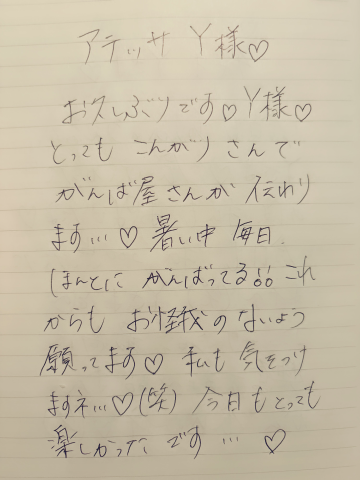 アテッサ Y様♡
お久しぶりです♡Y様♡
とっても こんがりさんで
がんば屋さんが伝わり
ます…♡ 暑い中 毎日、
ほんとに がんばってる!! これ
からも お怪我のないよう
願ってます♡ 私も 気をつけ
ますネ…♡(笑) 今日もとっても
楽しかったです…♡